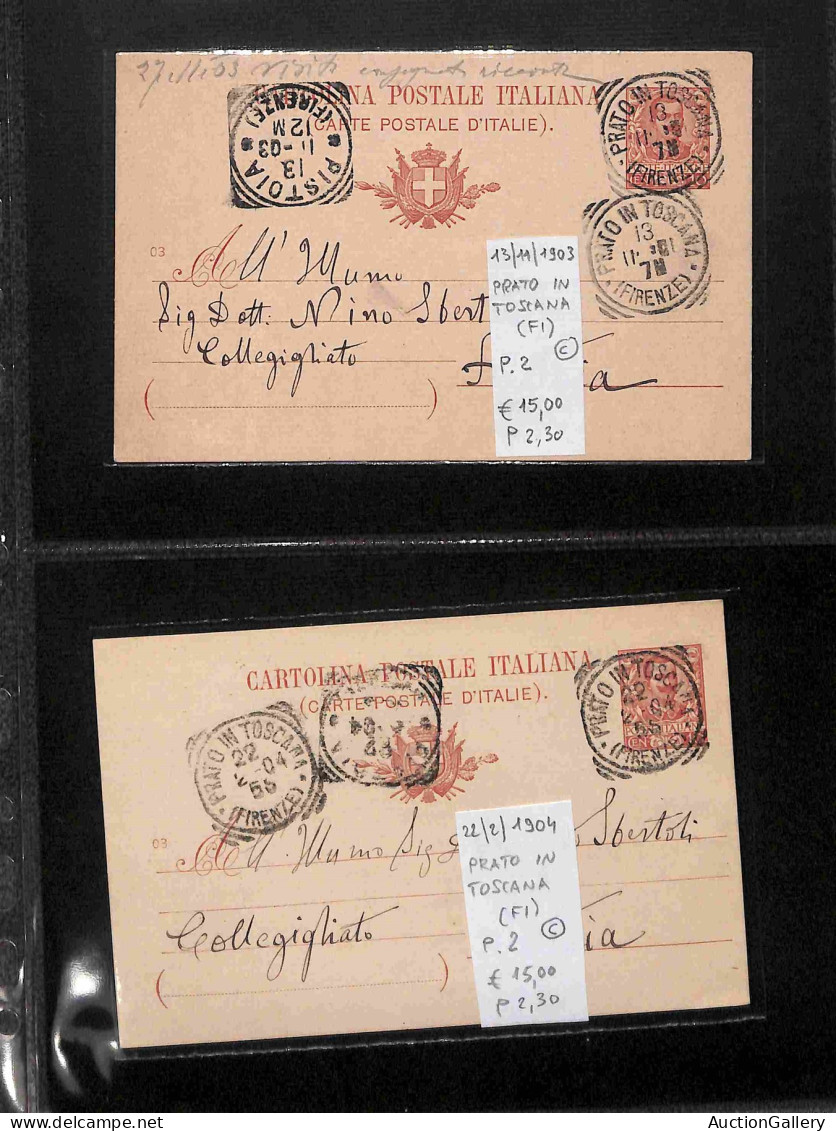 CARTOLINA POSTALE ITALIANA
(CARTE POSTALE D'ITALIE).
PISTOIA
(FIRENZE)
13
11-03
12M
PRATO IN TOSCANA
13
(FIRENZE)
PRATO IN TOSCANA
13
(FIRENZE)
03
All'Illumo
Sig Dott: Nino Sbert
Collegigliato
(
13/11/1903
PRATO IN
TOSCANA
(FI)
P.2 C
€ 15,00
P 2,30
CARTOLINA POSTALE ITALIANA
(CARTE POSTALE D'ITALIE).
PRATO IN TOSCANA
22
2-04
(FIRENZE)
PRATO IN TOSCANA
22
(FIRENZE)
03
All'Illumo Sig Sbertoli
Collegigliato
(
22/2/1904
PRATO IN
TOSCANA
(FI)
P.2 C
€ 15,00
P 2,30
AuctionGallery